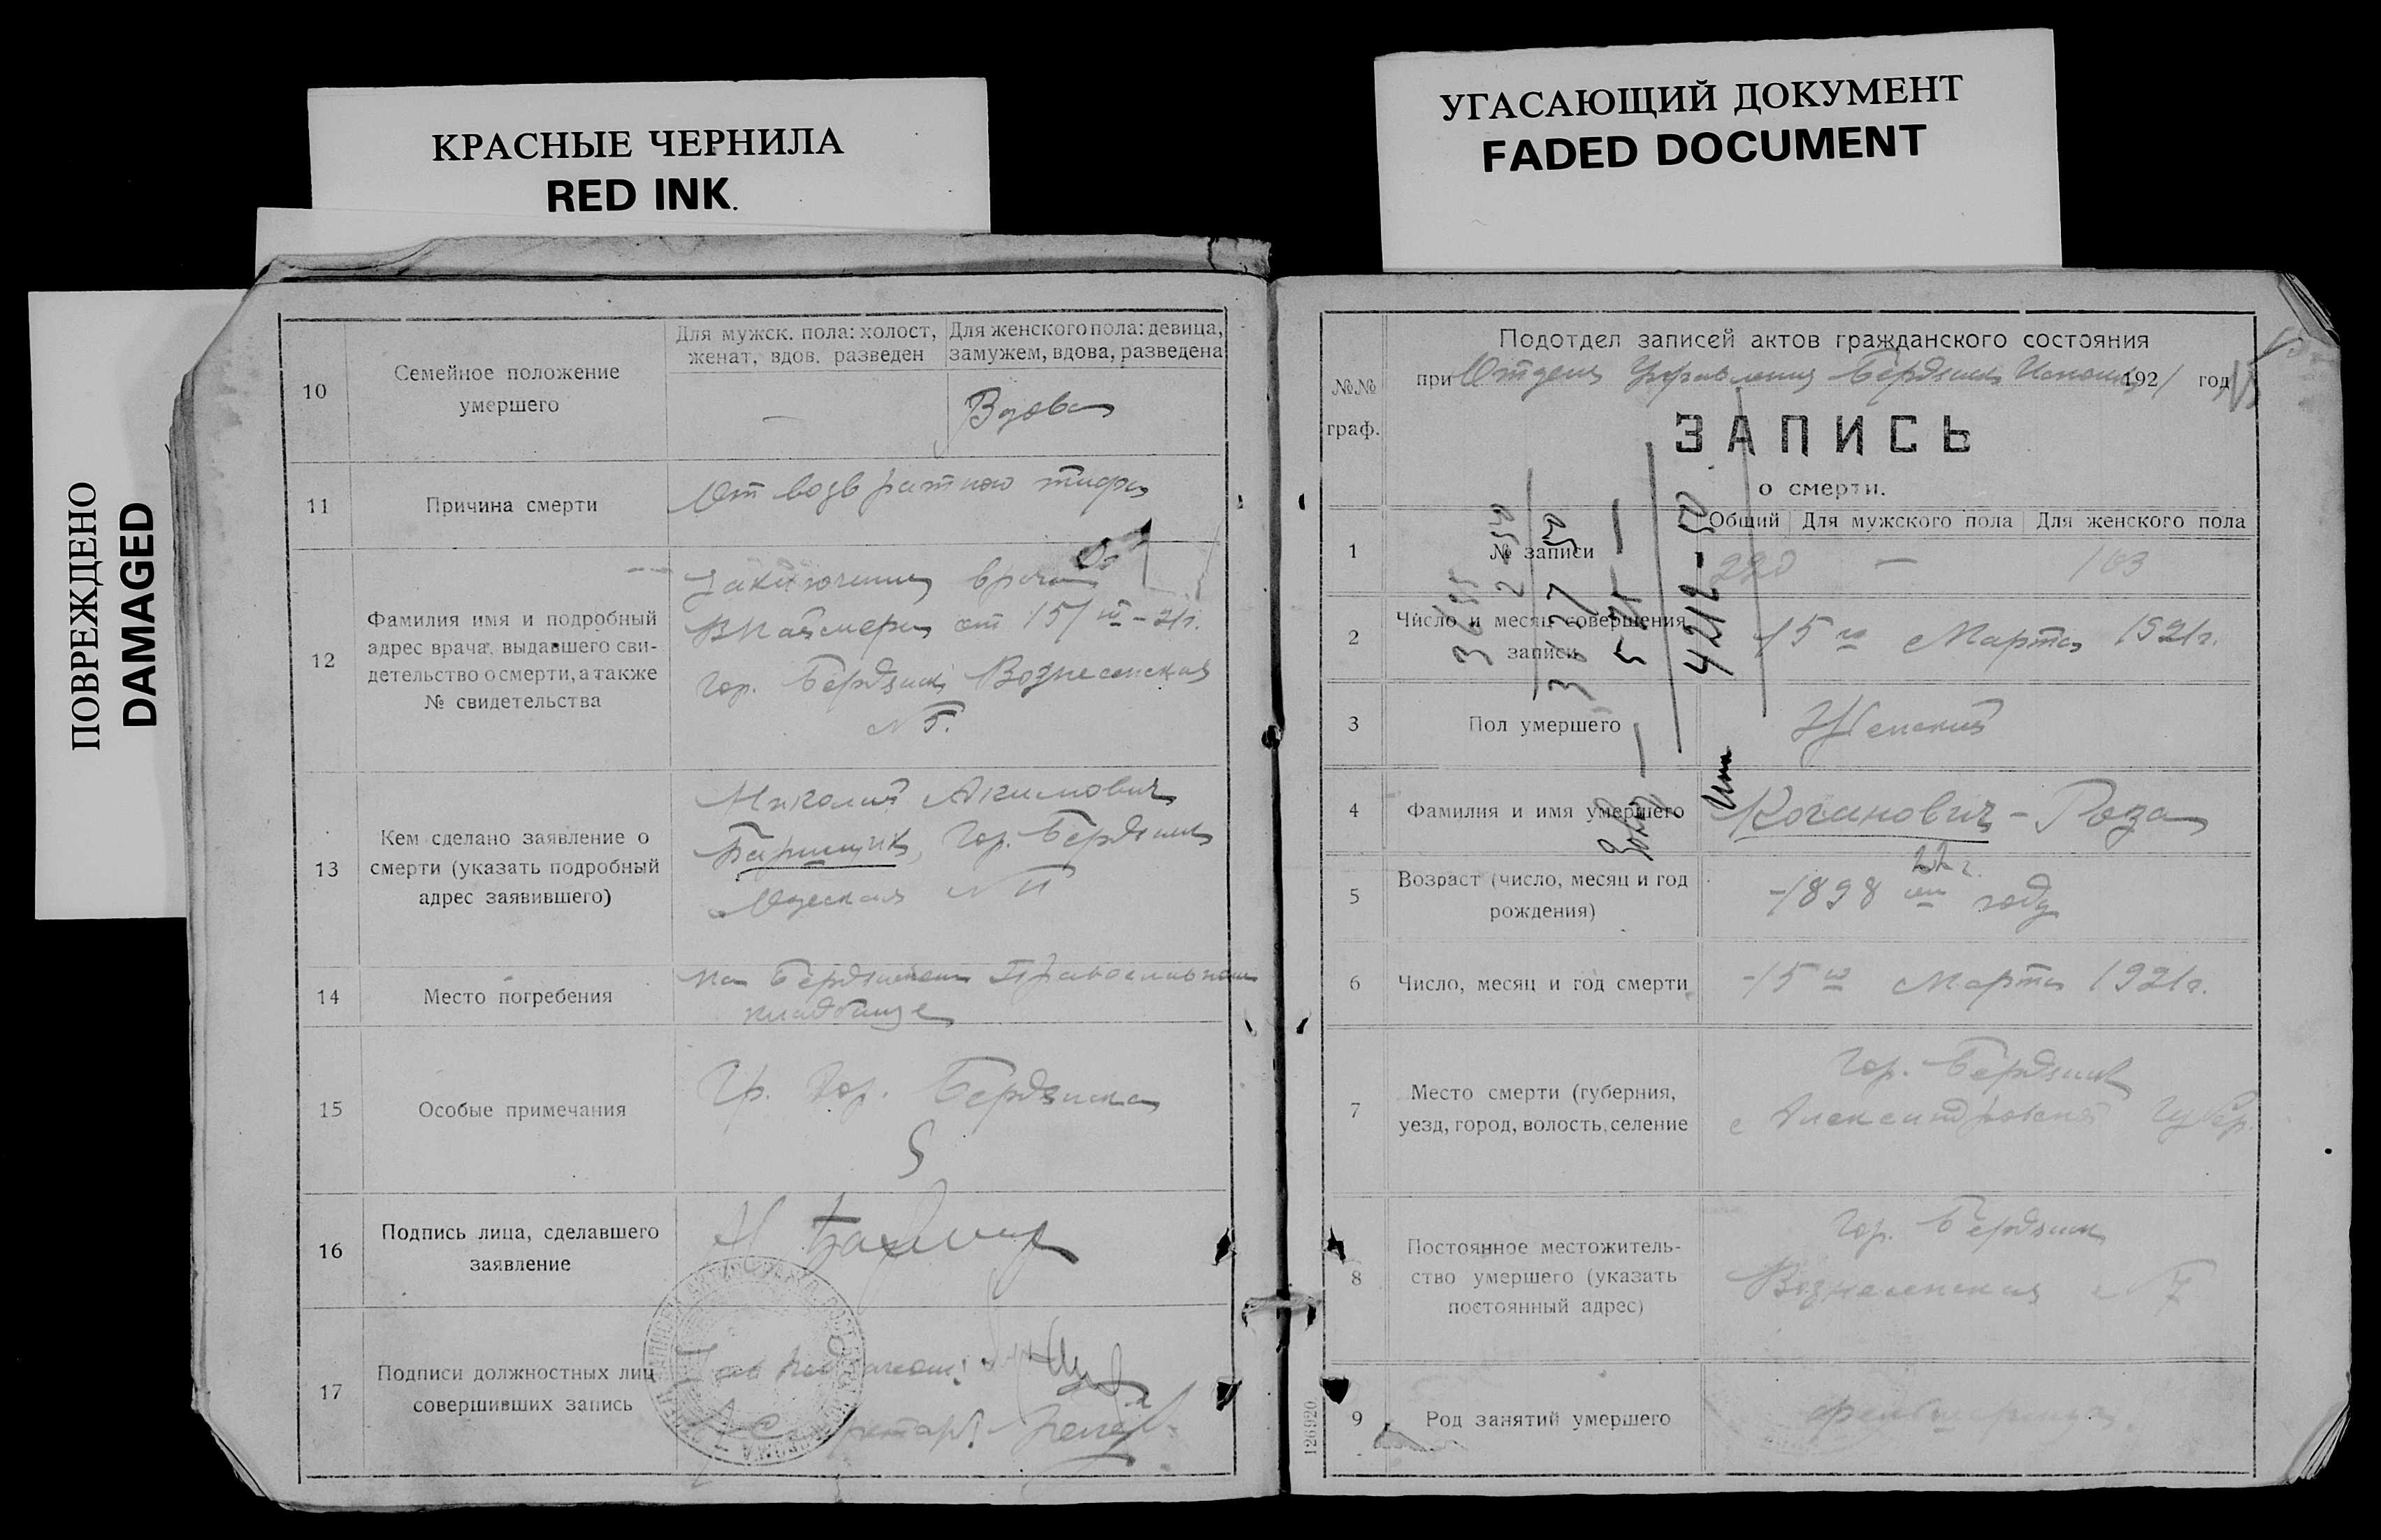 КРАСНЫЕ ЧЕРНИЛА
RED INK.
УГАСАЮЩИЙ ДОКУМЕНТ
FADED DOCUMENT
ПОВРЕЖДЕНО
DAMAGED
10
Семейное положение
умершего
Для мужск. пола: холост,
женат, вдов, разведен
—
Для женского пола: девица,
замужем, вдова, разведена
Вдова
11
Причина смерти
От возвратного тифа
12
Фамилия имя и подробный
адрес врача, выдавшего сви-
детельство о смерти, а также
№ свидетельства
Заключение врача
от 15/III-21г.
гор. Бердянск Вознесенская
№ 5.
13
Кем сделано заявление о
смерти (указать подробный
адрес заявившего)
Николай Акимович
гор. Бердянск
№ 11
14
Место погребения
на Бердянском Православном
кладбище
15
Особые примечания
Гр. гор. Бердянска
16
Подпись лица, сделавшего
заявление
17
Подписи должностных лиц
совершивших запись
№№
граф.
Подотдел записей актов гражданского состояния
при Отделе Управления Бердянск 1921 год
ЗАПИСЬ
о смерти.
1
№ записи
Общий
Для мужского пола
Для женского пола
220 — 103
2
Число и месяц совершения
записи
15го Марта 1921г.
3
Пол умершего
Женский
4
Фамилия и имя умершего
Коганович - Роза
5
Возраст (число, месяц и год
рождения)
22 г.
-1898 году
6
Число, месяц и год смерти
-15го Марта 1921г.
7
Место смерти (губерния,
уезд, город, волость, селение
гор. Бердянск
Александровской губер.
8
Постоянное местожитель-
ство умершего (указать
постоянный адрес)
гор. Бердянск
Вознесенская
9
Род занятий умершего
126920